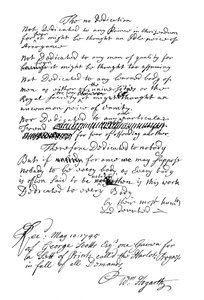 The no Dedication
Not Dedicated to any Prince in Christendom
for fear it might be thought an Idle piece of
Arrogance
Not Dedicated to any man of quality for
fear it might be thought too assuming
Not Dedicated to any learned body of
men as either of the
Royal Society for fear it might be thought an
uncommon piece of Vanity.
Nor Dedicated to any particular
Friend for fear of offending another
Therefore Dedicated to nobody
But if for once we may suppose
nobody to be every body, as Every body
is often said to be nobody, then is this work
Dedicated to every Body
by their most humble
and devoted
Rec: May 10: 1745
of George Esqr. one Guinea for
a Sett of Prints called the Harlots Progress
in full of all Demands
Wm. Hogarth